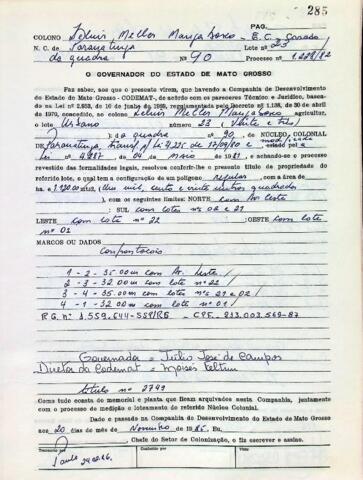 285
PAG.
COLONO Selvis Mellos Mangabosco - E.C. Casado
N. C. de Paranatinga Lote nº 23
da quadra nº 90 Processo nº 1.288/82
O GOVERNADOR DO ESTADO DE MATO GROSSO
Faz saber, aos que o presente virem, que havendo a Companhia de Desenvolvimento
do Estado de Mato Grosso - CODEMAT, de acôrdo com os pareceres Técnico e Jurídico, basea-
da na Lei nº 2.933, de 10 de junho de 1969, regulamentada pelo Decreto nº 1.138, de 30 de abril
de 1970, concedido, no colono Selvis Mellos Mangabosco, agricultor,
o lote Urbano número 23 (Vinte e Três)
da quadra nº 90, do NÚCLEO COLONIAL
de Paranatinga, Lei 4.225 de 17/09/80 e modificada
Lei nº 4.487 de 04 de Maio de 1981, e achando-se o processo
revestido das formalidades legais, resolvos conferir-lhe o presente título de propriedade do
referido lote, o qual tem a configuração de um polígono regular, com a área de
ha. 1.120 (Um mil, cento e vinte metros quadrados
), com os seguintes limites: NORTE com Av. Leste
; SUL com lotes nºs 02 e 21
LESTE com lote nº 22 ;OESTE com lote
nº 01
MARCOS OU DADOS
Confrontações
1 - 2 - 35.00m com Av. Leste
2 - 3 - 32.00 m com lote nº 22
3 - 4 - 35.00m com lotes nºs 21 e 02
4 - 1 - 32.00 m com lote nº 01
R.G. nº 1.559.644-SSP/RS - CPF. 213.003.569-87
Governador = Júlio José de Campos
Diretor da Codemat = Moisés Feltrin
título nº 2749
Como tudo consta do memorial e planta que ficam arquivados nesta Companhia, juntamente
com o processo de medição e loteamento do referido Núcleo Colonial.
Dado e passado na Companhia de Desenvolvimento do Estado de Mato Grosso
aos 20 dias do mês de Novembro de 1985. Eu,
Chefe do Setor de Colonização, o fiz escrever e assino.
Transcrito por
Conferido
Visto